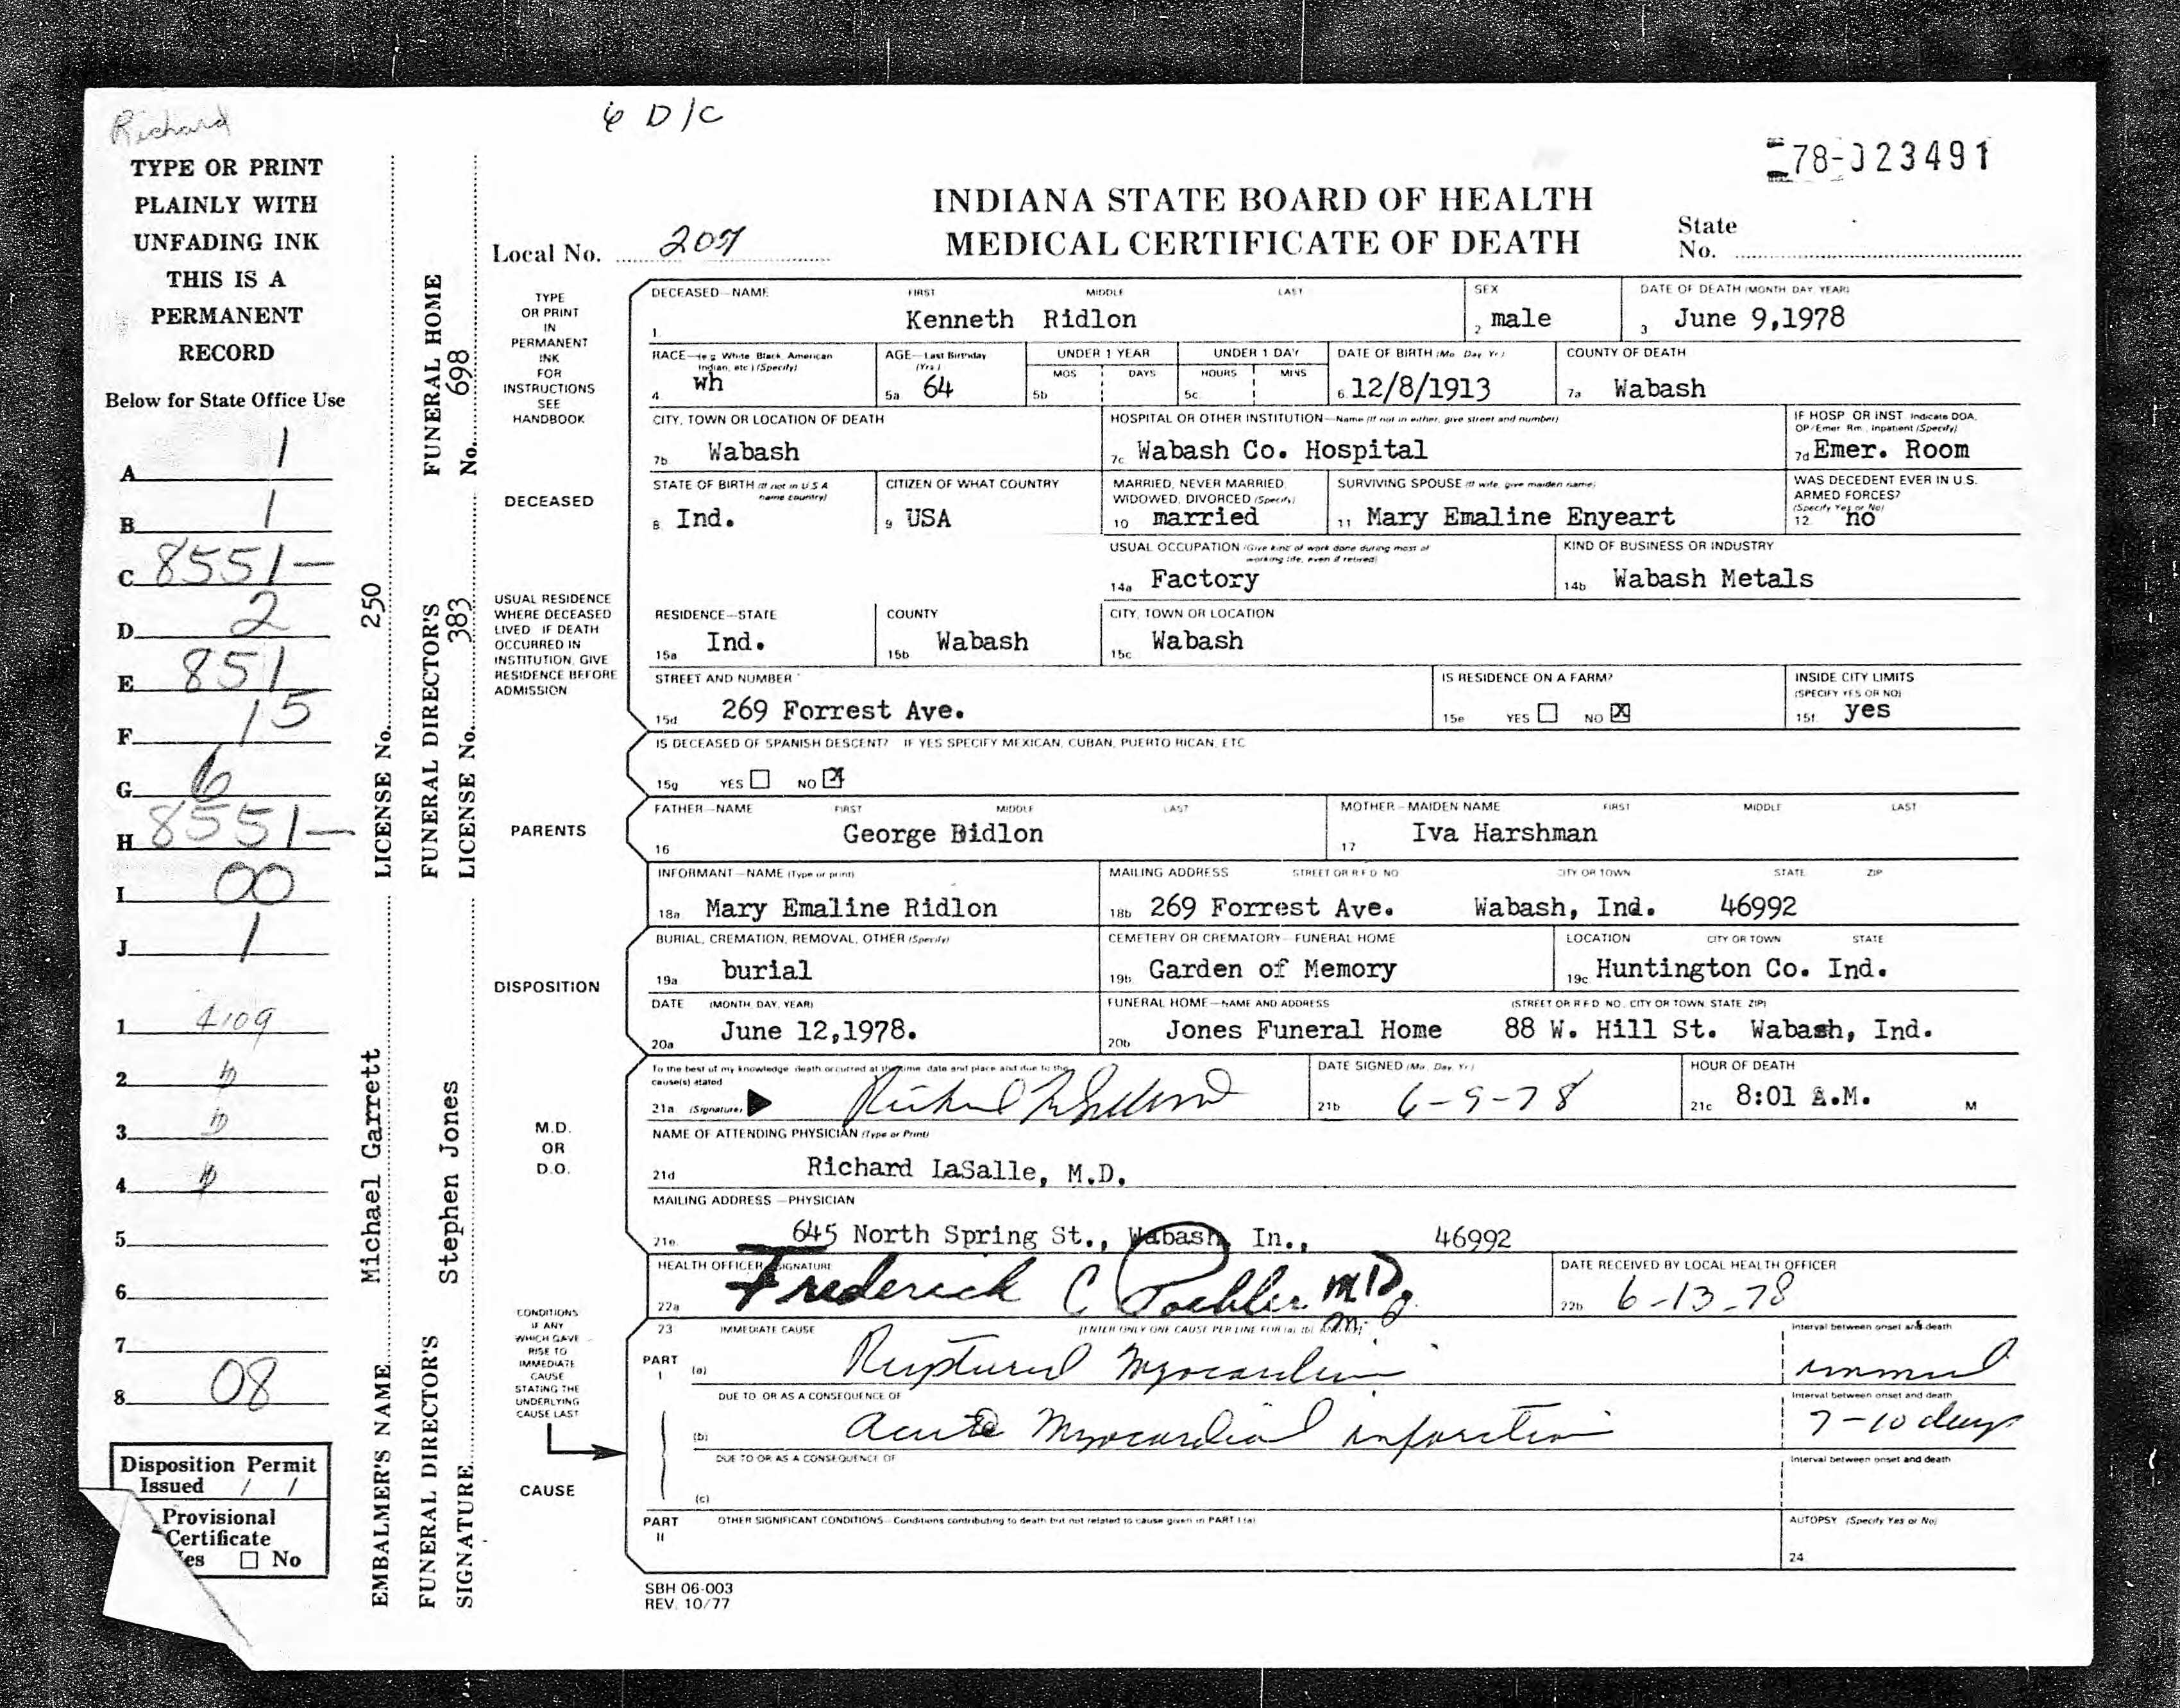 Richard
6 D/C
78-023491
TYPE OR PRINT
PLAINLY WITH
UNFADING INK
THIS IS A
PERMANENT
RECORD
Below for State Office Use
A 1
B 1
C 8551-
D 2
E 851
F 15
G 6
H 8551-
I 00
J 1
1 4109
2
3
4
5
6
7
8 08
Disposition Permit
Issued / /
Provisional
Certificate
es □ No
EMBALMER'S NAME Michael Garrett LICENSE No. 250
FUNERAL DIRECTOR'S SIGNATURE Stephen Jones
FUNERAL DIRECTOR'S LICENSE No. 383
FUNERAL HOME No. 698
INDIANA STATE BOARD OF HEALTH
MEDICAL CERTIFICATE OF DEATH
Local No. 207
State
No.
TYPE
OR PRINT
IN
PERMANENT
INK
FOR
INSTRUCTIONS
SEE
HANDBOOK
DECEASED
USUAL RESIDENCE
WHERE DECEASED
LIVED IF DEATH
OCCURRED IN
INSTITUTION, GIVE
RESIDENCE BEFORE
ADMISSION
PARENTS
DISPOSITION
M.D.
OR
D.O.
CONDITIONS
IF ANY
WHICH GAVE
RISE TO
IMMEDIATE
CAUSE
STATING THE
UNDERLYING
CAUSE LAST
CAUSE
DECEASED—NAME FIRST MIDDLE LAST
1. Kenneth Ridlon
SEX
2 male
DATE OF DEATH (MONTH, DAY, YEAR)
3 June 9,1978
RACE—(e.g. White, Black, American
Indian, etc.) (Specify)
4 wh
AGE—Last Birthday
(Yrs.)
5a 64
UNDER 1 YEAR
MOS DAYS
5b
UNDER 1 DAY
HOURS MINS
5c
DATE OF BIRTH (Mo. Day, Yr.)
6 12/8/1913
COUNTY OF DEATH
7a Wabash
CITY, TOWN OR LOCATION OF DEATH
7b Wabash
HOSPITAL OR OTHER INSTITUTION—Name (If not in either, give street and number)
7c Wabash Co. Hospital
IF HOSP OR INST Indicate DOA,
OP/Emer. Rm., Inpatient (Specify)
7d Emer. Room
STATE OF BIRTH (If not in U S A
name country)
8 Ind.
CITIZEN OF WHAT COUNTRY
9 USA
MARRIED, NEVER MARRIED,
WIDOWED, DIVORCED (Specify)
10 married
SURVIVING SPOUSE (If wife, give maiden name)
11 Mary Emaline Enyeart
WAS DECEDENT EVER IN U.S.
ARMED FORCES?
(Specify Yes or No)
12. no
USUAL OCCUPATION (Give kind of work done during most of
working life, even if retired)
14a Factory
KIND OF BUSINESS OR INDUSTRY
14b Wabash Metals
RESIDENCE—STATE
15a Ind.
COUNTY
15b Wabash
CITY, TOWN OR LOCATION
15c Wabash
STREET AND NUMBER
15d 269 Forrest Ave.
IS RESIDENCE ON A FARM?
15e YES □ NO ☒
INSIDE CITY LIMITS
(SPECIFY YES OR NO)
15f. yes
IS DECEASED OF SPANISH DESCENT? IF YES SPECIFY MEXICAN, CUBAN, PUERTO RICAN, ETC
15g YES □ NO ☒
FATHER—NAME FIRST MIDDLE LAST
16 George Bidlon
MOTHER—MAIDEN NAME FIRST MIDDLE LAST
17 Iva Harshman
INFORMANT—NAME (Type or print)
18a Mary Emaline Ridlon
MAILING ADDRESS STREET OR R.F.D. NO CITY OR TOWN STATE ZIP
18b 269 Forrest Ave. Wabash, Ind. 46992
BURIAL, CREMATION, REMOVAL, OTHER (Specify)
19a burial
CEMETERY OR CREMATORY—FUNERAL HOME
19b Garden of Memory
LOCATION CITY OR TOWN STATE
19c Huntington Co. Ind.
DATE (MONTH, DAY, YEAR)
20a June 12,1978.
FUNERAL HOME—NAME AND ADDRESS (STREET OR R.F.D. NO., CITY OR TOWN, STATE, ZIP)
20b Jones Funeral Home 88 W. Hill St. Wabash, Ind.
To the best of my knowledge death occurred at the time, date and place and due to the
cause(s) stated
21a (Signature)
DATE SIGNED (Mo., Day, Yr.)
21b 6-9-78
HOUR OF DEATH
21c 8:01 A.M. M
NAME OF ATTENDING PHYSICIAN (Type or Print)
21d Richard LaSalle, M.D.
MAILING ADDRESS—PHYSICIAN
21e 645 North Spring St., Wabash, In., 46992
HEALTH OFFICER SIGNATURE
22a Frederick C Poehler M.D.
DATE RECEIVED BY LOCAL HEALTH OFFICER
22b 6-13-78
23 IMMEDIATE CAUSE [ENTER ONLY ONE CAUSE PER LINE FOR (a), (b), AND (c)]
PART I (a) Ruptured Myocardium
Interval between onset and death
immed
DUE TO OR AS A CONSEQUENCE OF
(b) Acute Myocardial infarction
Interval between onset and death
7-10 days
DUE TO OR AS A CONSEQUENCE OF
(c)
Interval between onset and death
PART II OTHER SIGNIFICANT CONDITIONS—Conditions contributing to death but not related to cause given in PART I (a)
AUTOPSY (Specify Yes or No)
24
SBH 06-003
REV. 10/77